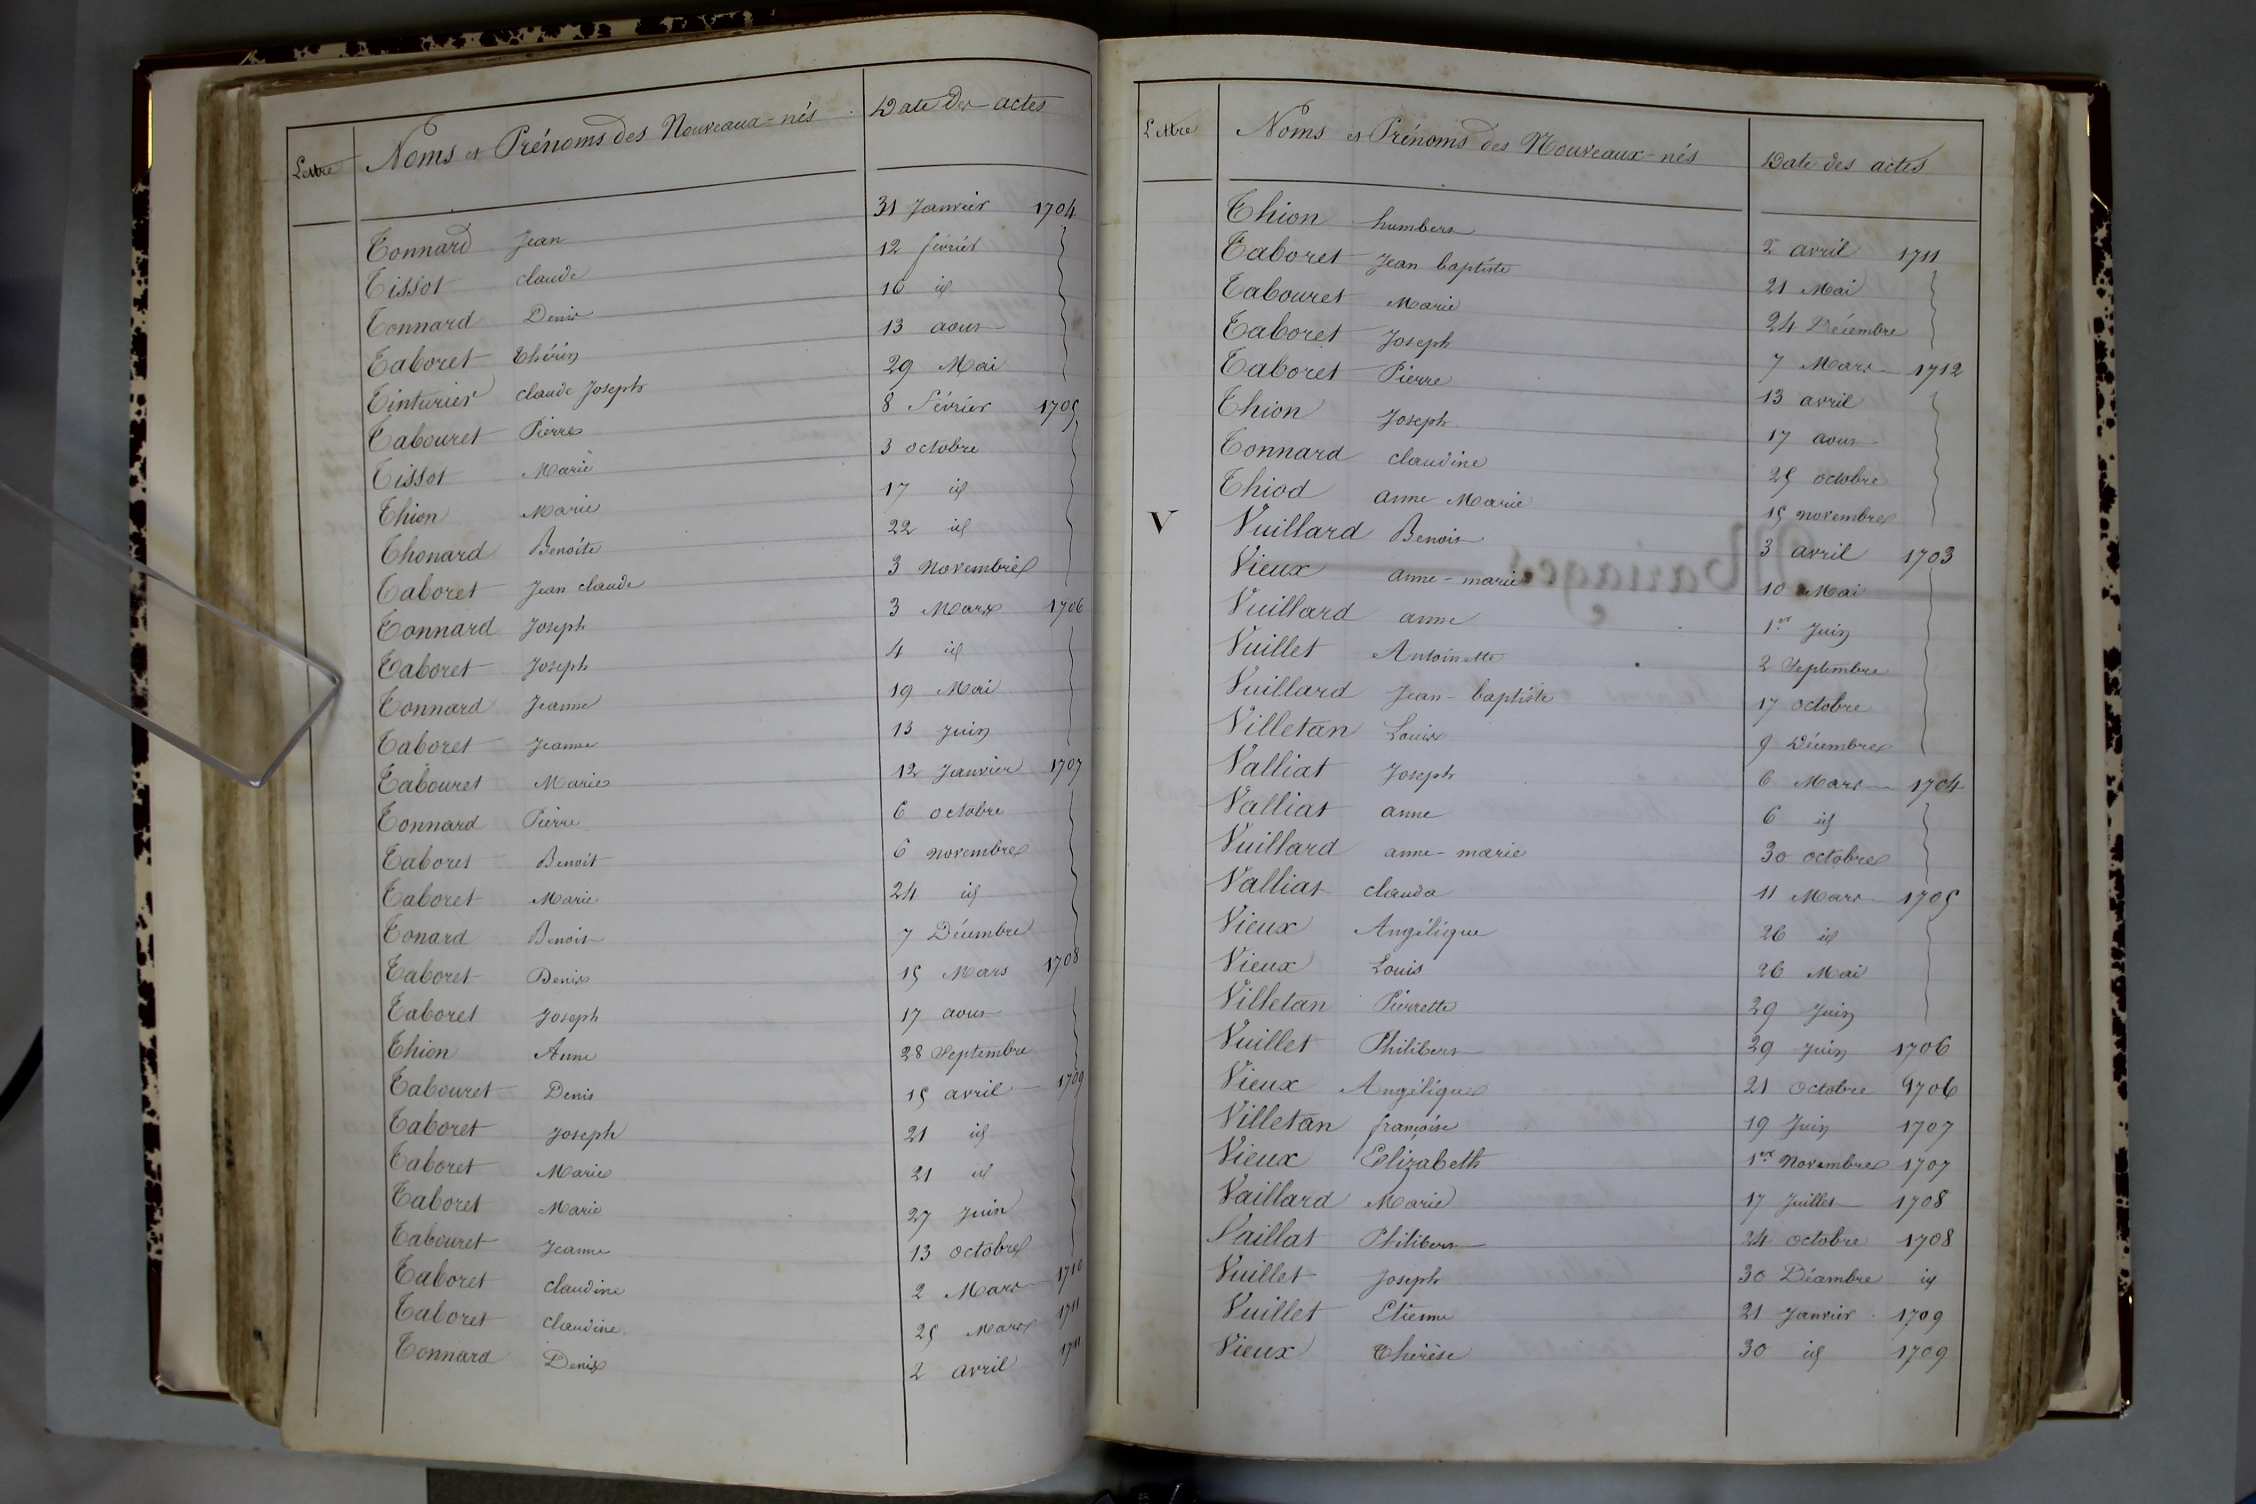 Lettre Noms et Prénoms des Nouveaux-nés Date des actes
Tonnard Jean 31 Janvier 1704
Tissot claude 12 février
Tonnard Denis 16 id
Taboret Thérin 13 aout
Tinturier claude Joseph 29 Mai
Tabouret Pierre 8 Février 1705
Tissot Marie 3 octobre
Thion Marie 17 id
Thonard Benoite 22 id
Taboret Jean claude 3 Novembre
Tonnard Joseph 3 Mars 1706
Taboret Joseph 4 id
Tonnard Jeanne 19 Mai
Taboret Jeanne 13 Juin
Tabouret Marie 12 Janvier 1707
Tonnard Pierre 6 octobre
Taboret Benoit 6 Novembre
Taboret Marie 24 id
Tonard Benoit 7 Décembre
Taboret Denis 15 Mars 1708
Taboret Joseph 17 aout
Thion Anne 28 Septembre
Tabouret Denis 15 avril 1709
Taboret Joseph 21 id
Taboret Marie 21 id
Taboret Marie 27 Juin
Tabouret Jeanne 13 octobre
Taboret claudine 2 Mars 1710
Taboret claudine 25 Mars 1711
Tonnard Denis 2 avril 1711
Lettre Noms et Prénoms des Nouveaux-nés Date des actes
Thion humbert 2 avril 1711
Taboret Jean baptiste 21 Mai
Tabouret Marie 24 Décembre
Taboret Joseph 7 Mars 1712
Taboret Pierre 13 avril
Thion Joseph 17 aout
Tonnard claudine 25 octobre
Thiod anne Marie 15 Novembre
V Vuillard Benoit 3 avril 1703
Vieux anne-marie 10 Mai
Vuillard anne 1er Juin
Vuillet Antoinette 2 Septembre
Vuillard Jean-baptiste 17 octobre
Villetan Louis 9 Décembre
Valliat Joseph 6 Mars 1704
Valliat anne 6 id
Vuillard anne-marie 30 octobre
Valliat clauda 11 Mars 1705
Vieux Angélique 26 id
Vieux Louis 26 Mai
Villetan Pierrette 29 Juin
Vuillet Philibert 29 Juin 1706
Vieux Angélique 21 Octobre 1706
Villetan françoise 19 Juin 1707
Vieux Elizabeth 1er Novembre 1707
Vaillard Marie 17 Juillet 1708
Vaillat Philibert 24 octobre 1708
Vuillet Joseph 30 Décembre id
Vuillet Etienne 21 Janvier 1709
Vieux Thérèse 30 id 1709